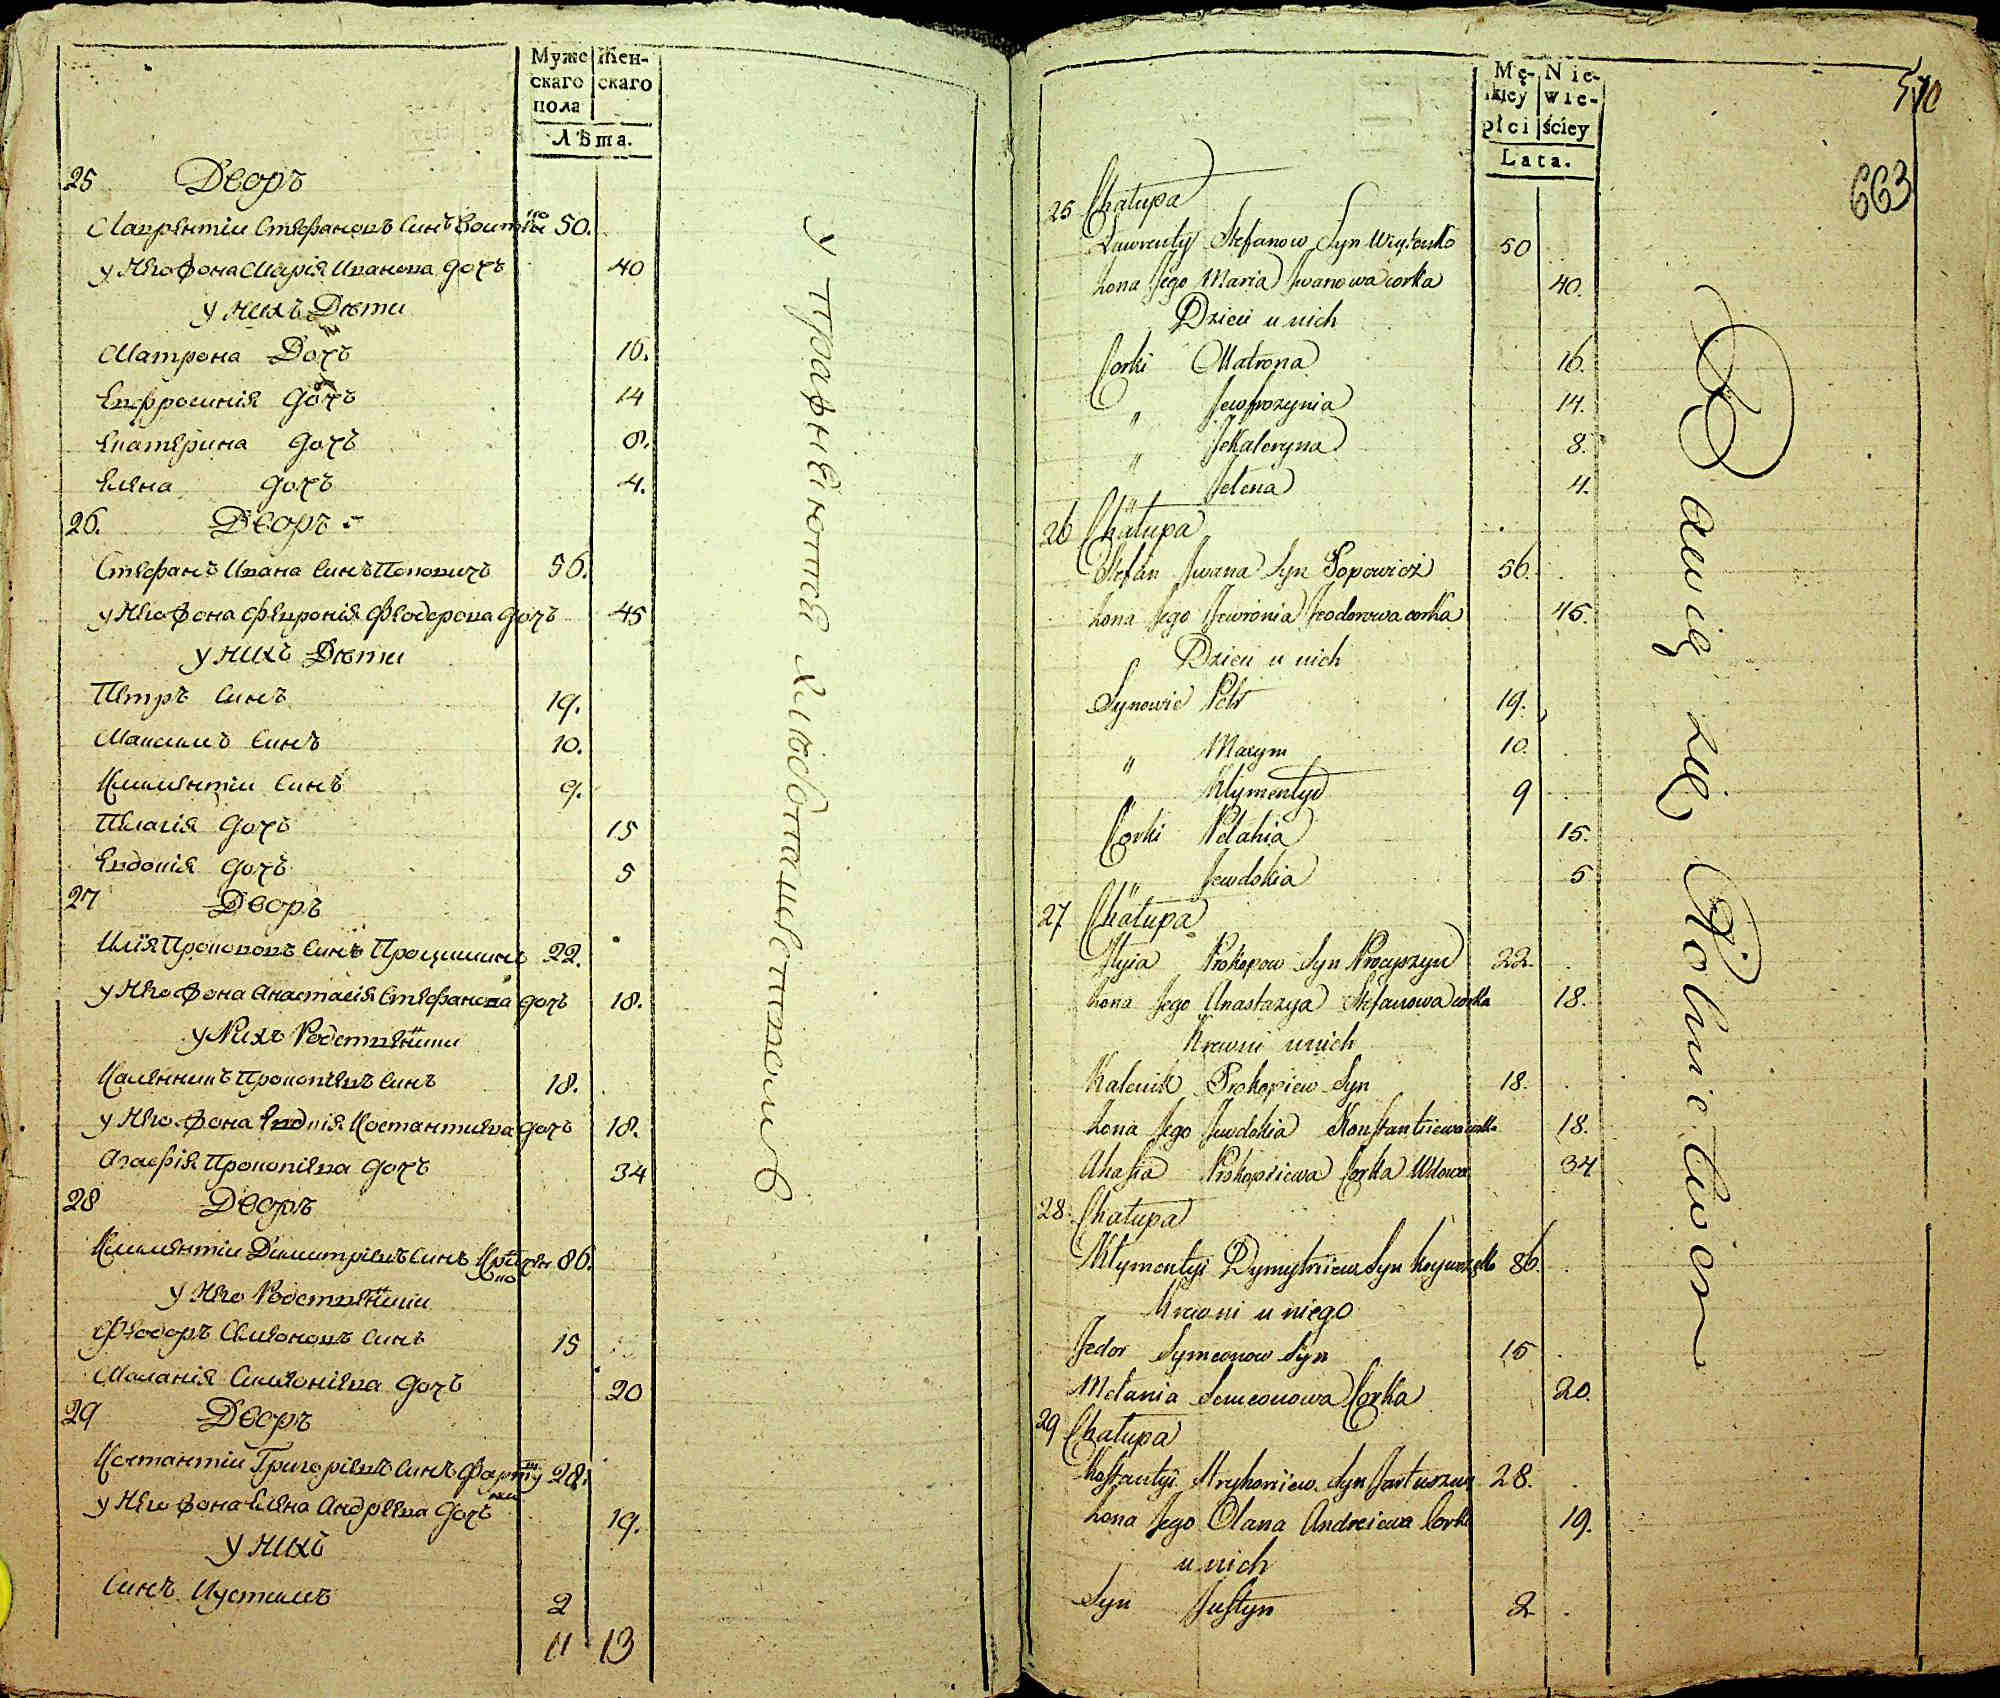 Муже Жен-
скаго скаго
пола
Лѣта.
25 Дворъ
Лаврентіи Стефановъ Синъ Воитко 50.
у Него Жона Марія Иванова дочъ 40
у нихъ Дѣти
Матрона Дочъ 16.
Евфросинія дочъ 14
Екатерина дочъ 8.
Елена дочъ 4.
26. Дворъ
Стефанъ Ивана Синъ Поповичъ 56.
у Него Жона Февронія Феодорова дочъ 45
у нихъ Дѣти
Петръ Синъ 19.
Максимъ Синъ 10.
Климентіи Синъ 9.
Пелагія дочъ 15
Евдокія дочъ 5
27 Дворъ
Илія Прокоповъ Синъ Процишинъ 22.
у Него Жона Анастасія Стефанова дочъ 18.
у Нихъ Родственники
Каленникъ Прокопіевъ Синъ 18.
у Него Жона Евдокія Костантиева дочъ 18.
Агафія Прокопіева дочъ 34
28 Дворъ
Климентіи Димитріевъ Синъ 86.
у Него Родственники
Феодоръ Симоновъ Синъ 15
Меланія Симеоніева дочъ 20
29 Дворъ
Костантіи Григоріевъ Синъ 28.
у Него Жона Елена Андрѣева дочъ 19.
у нихъ
Синъ Иустимъ 2
11 13
упражняются хлѣбопашествомъ
570
663
Mę- Nie-
skiey wie-
płci ściey
Lata.
25 Chałupa
Ławrenty Stefanow Syn Wiytowko 50
Żona Jego Maria Jwanowa corka 40.
Dzieci u nich
Corki Matrona 16.
" Jewfrozynia 14.
" Jekateryna 8.
" Jelena 4.
26 Chałupa
Stefan Jwana Syn Popowicz 56.
Żona Jego Fewronia Feodorowa corka 45.
Dzieci u nich
Synowie Petr 19.
" Maxym 10.
" Klymentyi 9
Corki Pelahia 15.
" Jewdokia 5
27 Chałupa
Jlyia Prokopow Syn Procyszyn 22.
Żona Jego Anastazya Stefanowa corka 18.
Krewni u nich
Kalenik Prokopiew Syn 18.
Żona Jego Jewdokia Konstantiewa corka 18.
Ahafia Prokopiewa Corka Wdowa 34
28. Chałupa
Klymentyi Dymytriew Syn 86.
Krewni u niego
Fedor Symeonow Syn 15
Melania Semeonowa Corka 20.
29 Chałupa
Kostantyi Hryhoriew Syn 28.
Żona Jego Olana Andreiewa Corka 19.
u nich
Syn Justyn 2
Bawią się Rolnictwem